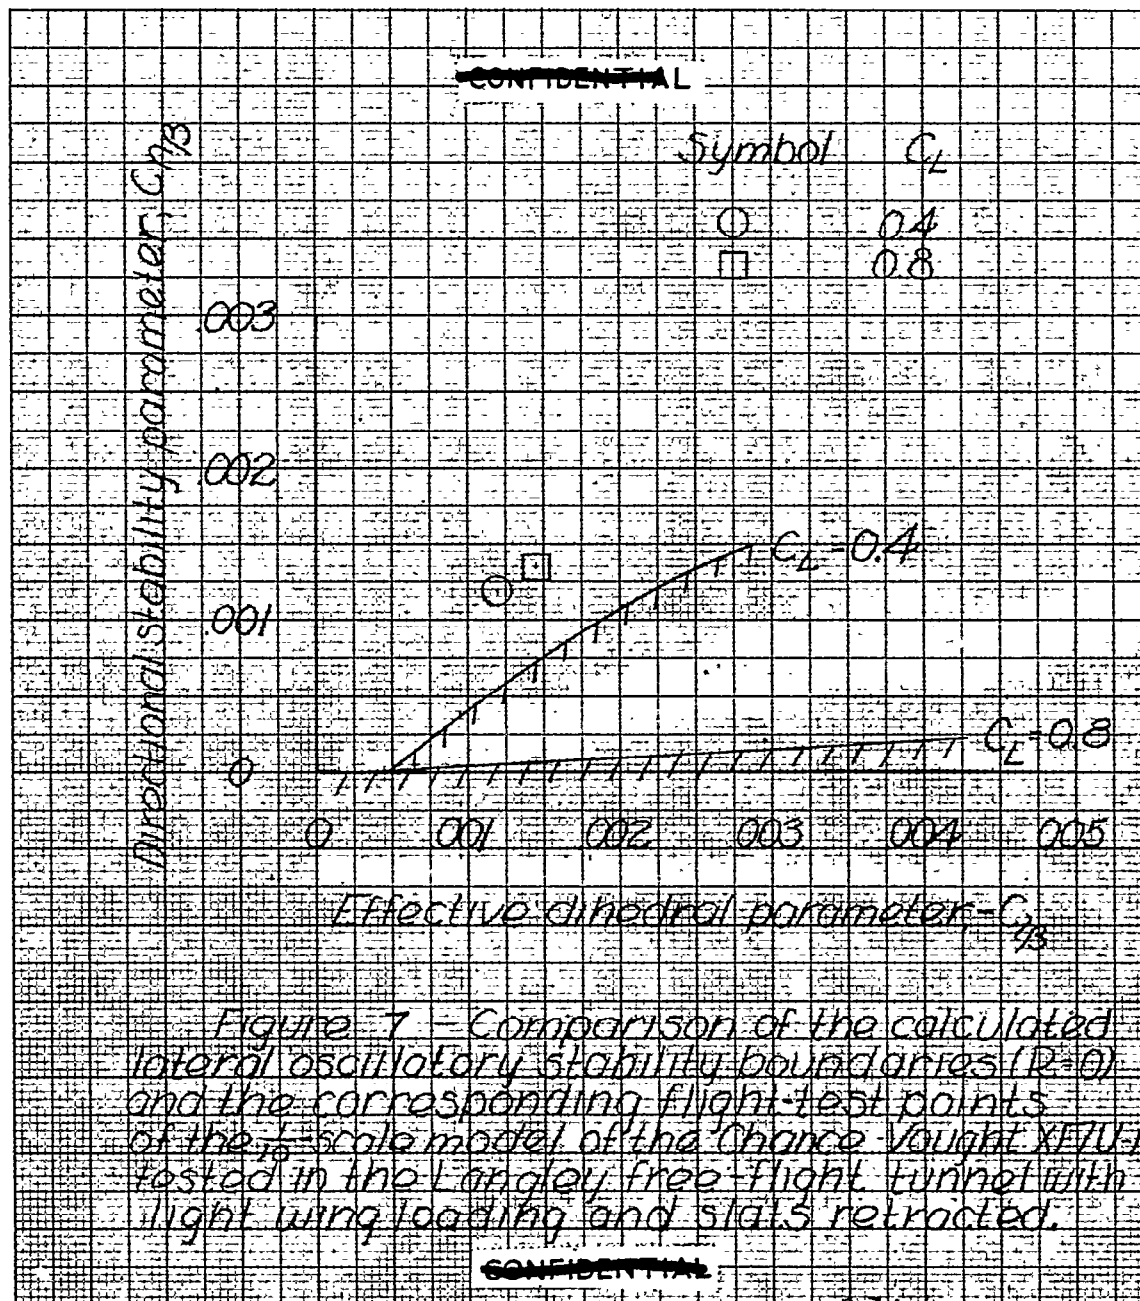 CONFIDENTIAL
Symbol C_L
○ 0.4
□ 0.8
Directional stability parameter, C_nβ
.003
.002
.001
0
C_L=0.4
C_L=0.8
0 .001 .002 .003 .004 .005
Effective dihedral parameter, -C_lβ
Figure 7 - Comparison of the calculated
lateral oscillatory stability boundaries (R=0)
and the corresponding flight-test points
of the 1/10-scale model of the Chance Vought XF7U-1
tested in the Langley free-flight tunnel with
light wing loading and slats retracted.
CONFIDENTIAL